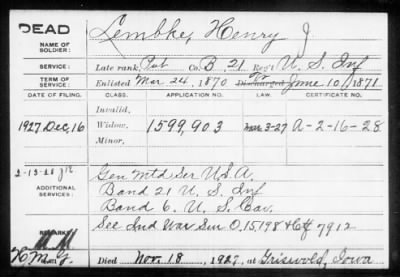 DEAD
NAME OF SOLDIER: Lembke, Henry J.
SERVICE: Late rank, Pvt Co. B, 21 Reg't U. S. Inf
TERM OF SERVICE: Enlisted Mar 24, 1870 Discharged June 10, 1871
DATE OF FILING. CLASS. APPLICATION NO. LAW. CERTIFICATE NO.
Invalid,
1927 Dec, 16 Widow, 1599,903 Mar 3-27 A-2-16-28
Minor,
Gen Mtd Ser U.S.A.
ADDITIONAL SERVICES: Band 21 U. S. Inf
Band 6. U. S. Cav.
See Ind War Sur O. 15198 & Ctf 7912
REMARKS:
Died Nov. 18, 1927, at Griswold, Iowa